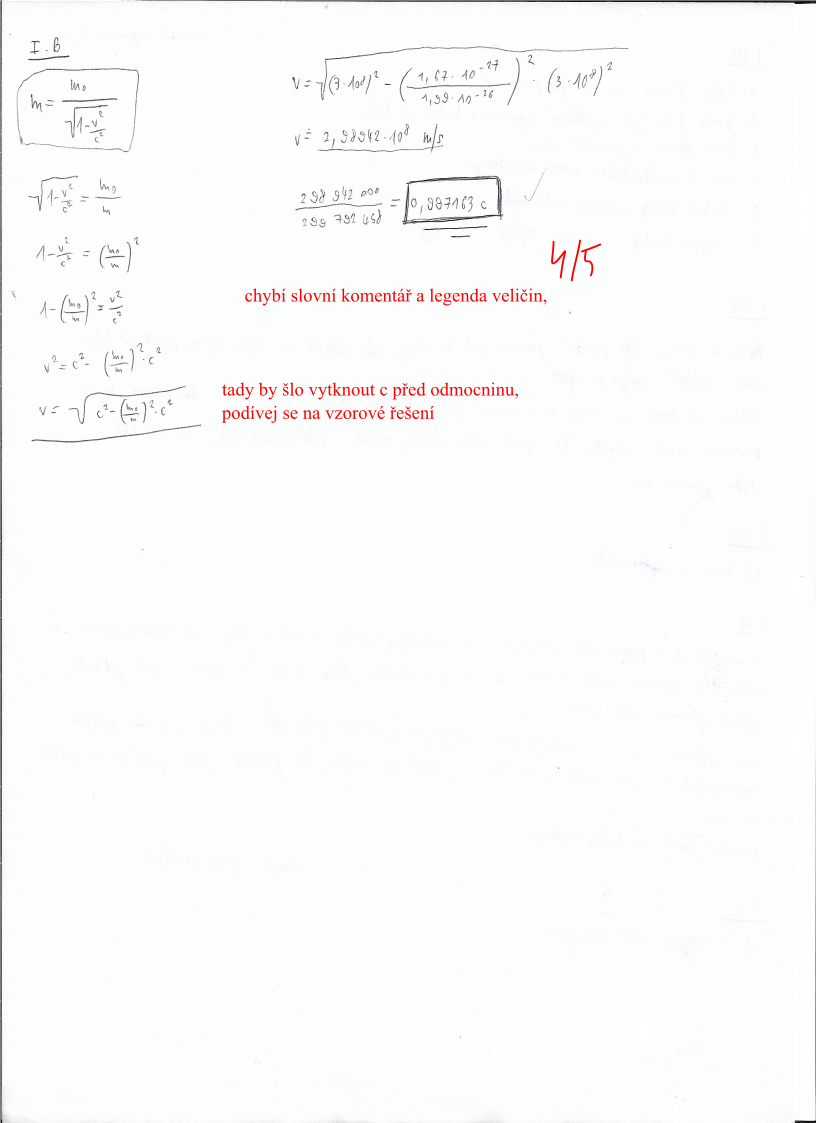 I.B
m = m₀ / √(1 - v²/c²)
√(1 - v²/c²) = m₀/m
1 - v²/c² = (m₀/m)²
1 - (m₀/m)² = v²/c²
v² = c² - (m₀/m)² · c²
v = √(c² - (m₀/m)² · c²)
v = √((3·10⁸)² - (1,67·10⁻²⁷ / 1,99·10⁻²⁶)² · (3·10⁸)²)
v ≐ 2,98942·10⁸ m/s
298 942 000 / 299 792 458 = 0,997163 c
4/5
chybí slovní komentář a legenda veličin,
tady by šlo vytknout c před odmocninu,
podívej se na vzorové řešení